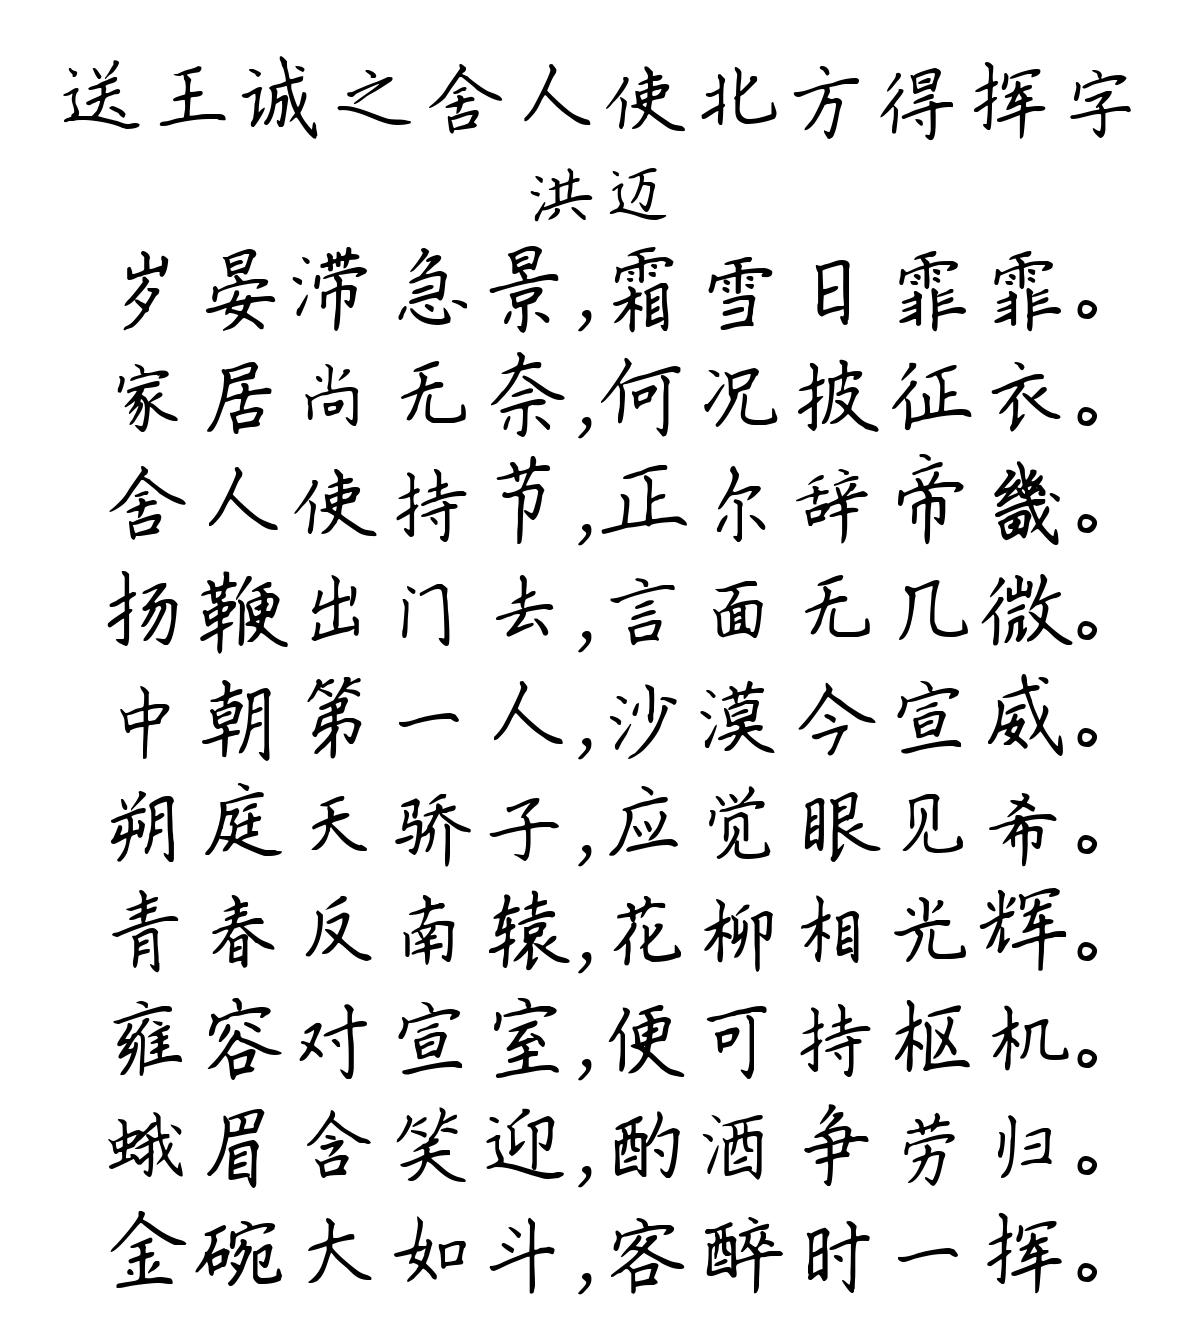 送王诚之舍人使北方得挥字
洪迈
岁晏滞急景,霜雪日霏霏。
家居尚无奈,何况披征衣。
舍人使持节,正尔辞帝畿。
扬鞭出门去,言面无几微。
中朝第一人,沙漠今宣威。
朔庭天骄子,应觉眼见希。
青春反南辕,花柳相光辉。
雍容对宣室,便可持枢机。
蛾眉含笑迎,酌酒争劳归。
金碗大如斗,客醉时一挥。